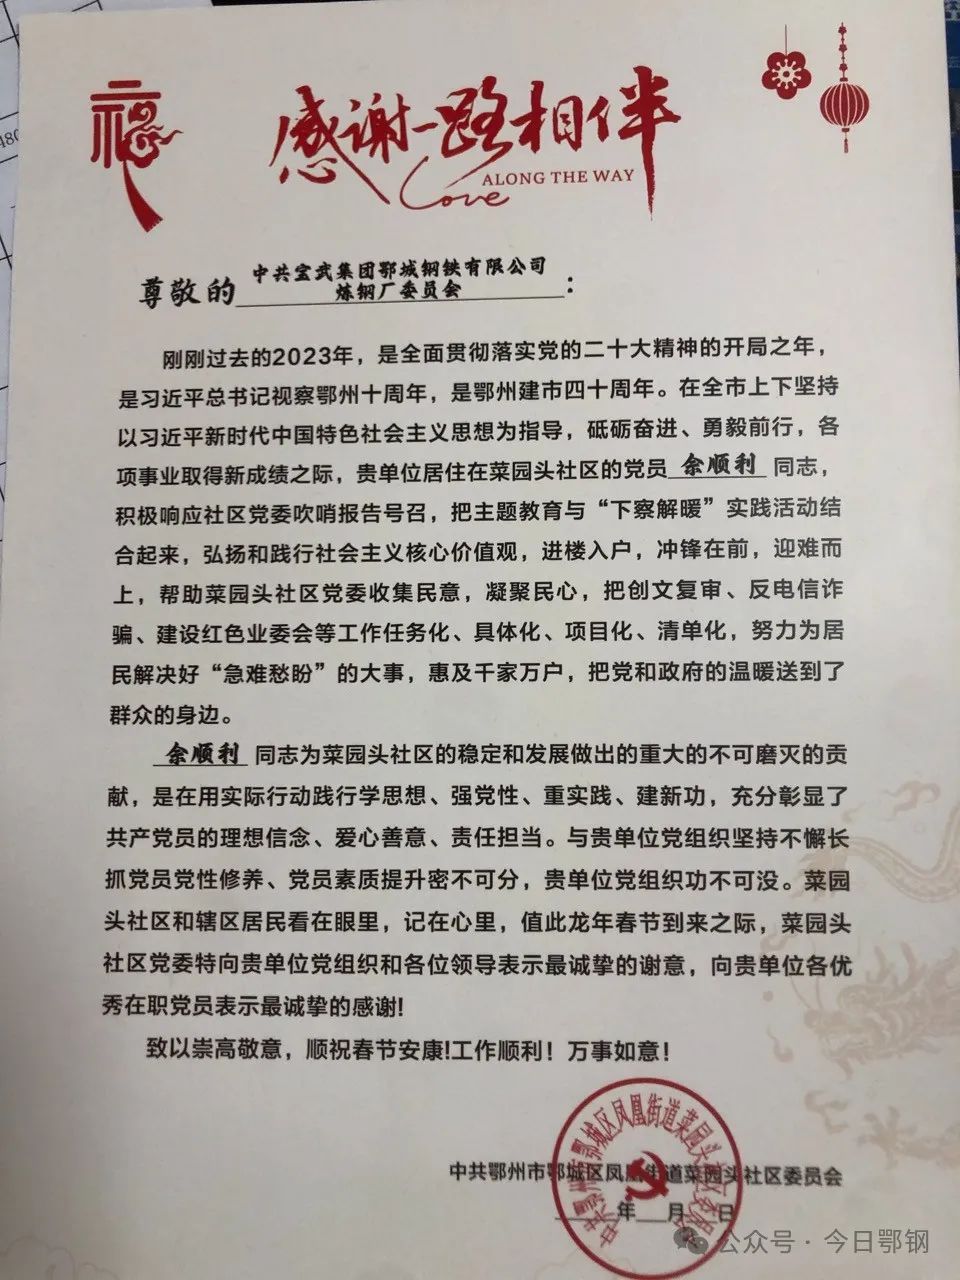 福
感谢一路相伴
Love ALONG THE WAY
尊敬的 中共宝武集团鄂城钢铁有限公司
炼钢厂委员会：
刚刚过去的2023年，是全面贯彻落实党的二十大精神的开局之年，
是习近平总书记视察鄂州十周年，是鄂州建市四十周年。在全市上下坚持
以习近平新时代中国特色社会主义思想为指导，砥砺奋进、勇毅前行，各
项事业取得新成绩之际，贵单位居住在菜园头社区的党员 余顺利 同志，
积极响应社区党委吹哨报告号召，把主题教育与“下察解暖”实践活动结
合起来，弘扬和践行社会主义核心价值观，进楼入户，冲锋在前，迎难而
上，帮助菜园头社区党委收集民意，凝聚民心，把创文复审、反电信诈
骗、建设红色业委会等工作任务化、具体化、项目化、清单化，努力为居
民解决好“急难愁盼”的大事，惠及千家万户，把党和政府的温暖送到了
群众的身边。
余顺利 同志为菜园头社区的稳定和发展做出的重大的不可磨灭的贡
献，是在用实际行动践行学思想、强党性、重实践、建新功，充分彰显了
共产党员的理想信念、爱心善意、责任担当。与贵单位党组织坚持不懈长
抓党员党性修养、党员素质提升密不可分，贵单位党组织功不可没。菜园
头社区和辖区居民看在眼里，记在心里，值此龙年春节到来之际，菜园头
社区党委特向贵单位党组织和各位领导表示最诚挚的谢意，向贵单位各优
秀在职党员表示最诚挚的感谢!
致以崇高敬意，顺祝春节安康!工作顺利！万事如意！
中共鄂州市鄂城区凤凰街道菜园头社区委员会
年 月 日
公众号·今日鄂钢